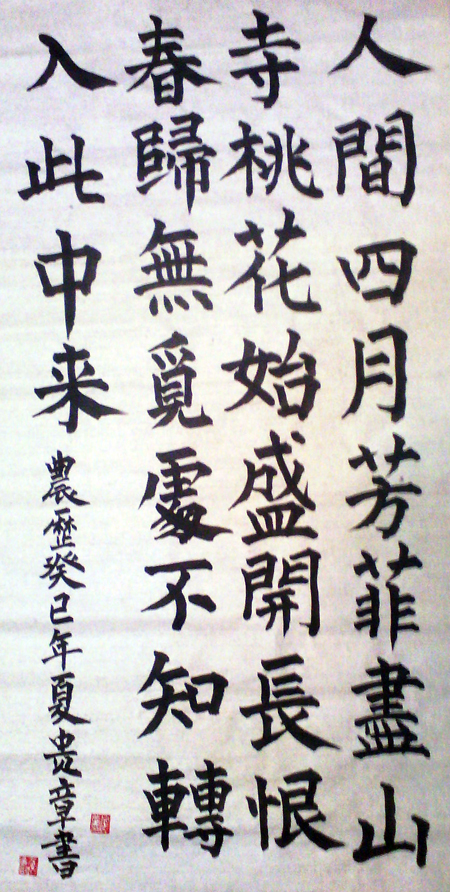 人間四月芳菲盡山
寺桃花始盛開長恨
春歸無覓處不知轉
入此中来
農歷癸巳年夏贵章書